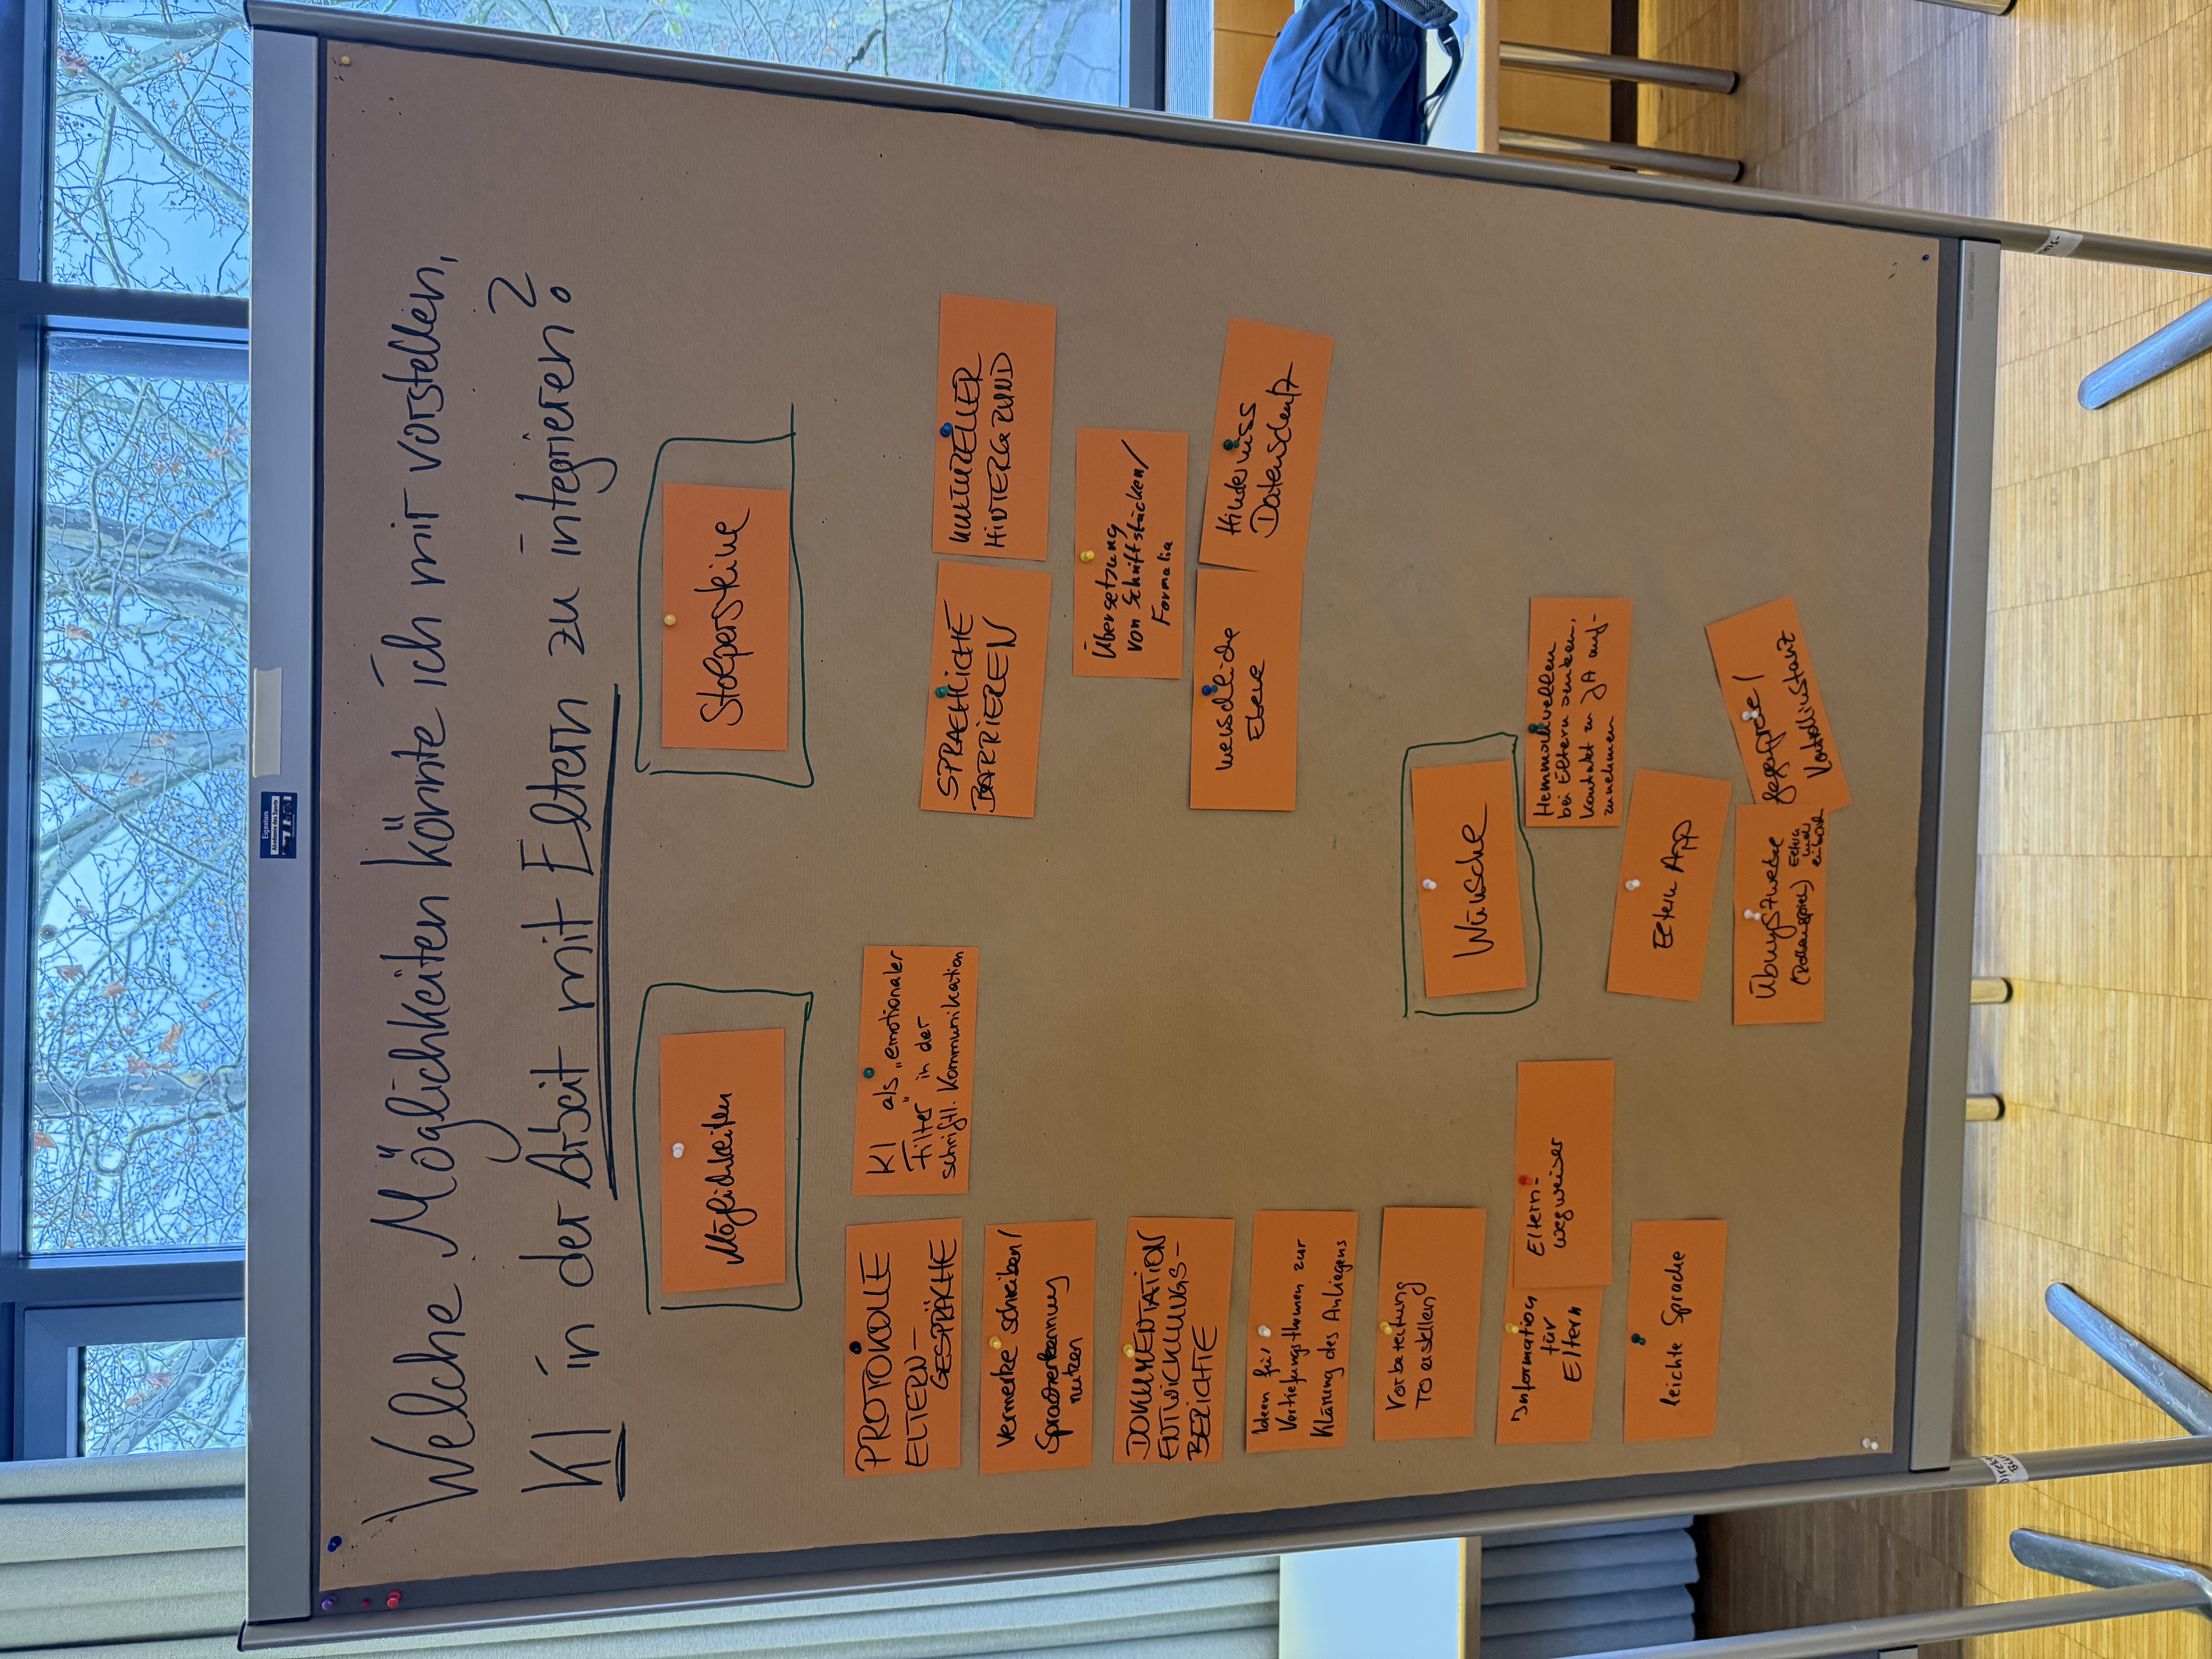 Welche Möglichkeiten könnte ich mir vorstellen,
KI in der Arbeit mit Eltern zu integrieren?
Möglichkeiten
PROTOKOLLE
ELTERN-
GESPRÄCHE
KI als „emotionaler
Filter" in der
schriftl. Kommunikation
Vermerke schreiben/
Spracherkennung
nutzen
DOKUMENTATION
ENTWICKLUNGS-
BERICHTE
Ideen für
Vertiefungsthemen zur
Klärung des Anliegens
Vorbereitung
TO erstellen
Information
für
Eltern
Eltern-
wegweiser
leichte Sprache
Stolpersteine
SPRACHLICHE
BARRIEREN
KULTURELLER
HINTERGRUND
Übersetzung
von Schriftstücken/
Formalia
menschliche
Ebene
Hindernis
Datenschutz
Wünsche
Hemmschwellen
bei Eltern senken,
Kontakt zu JA auf-
zunehmen
Eltern App
Übungszwecke
(Rollenspiel)
Gegenprobe/
Kontrollinstanz
Eigentum
Akademie des Sports